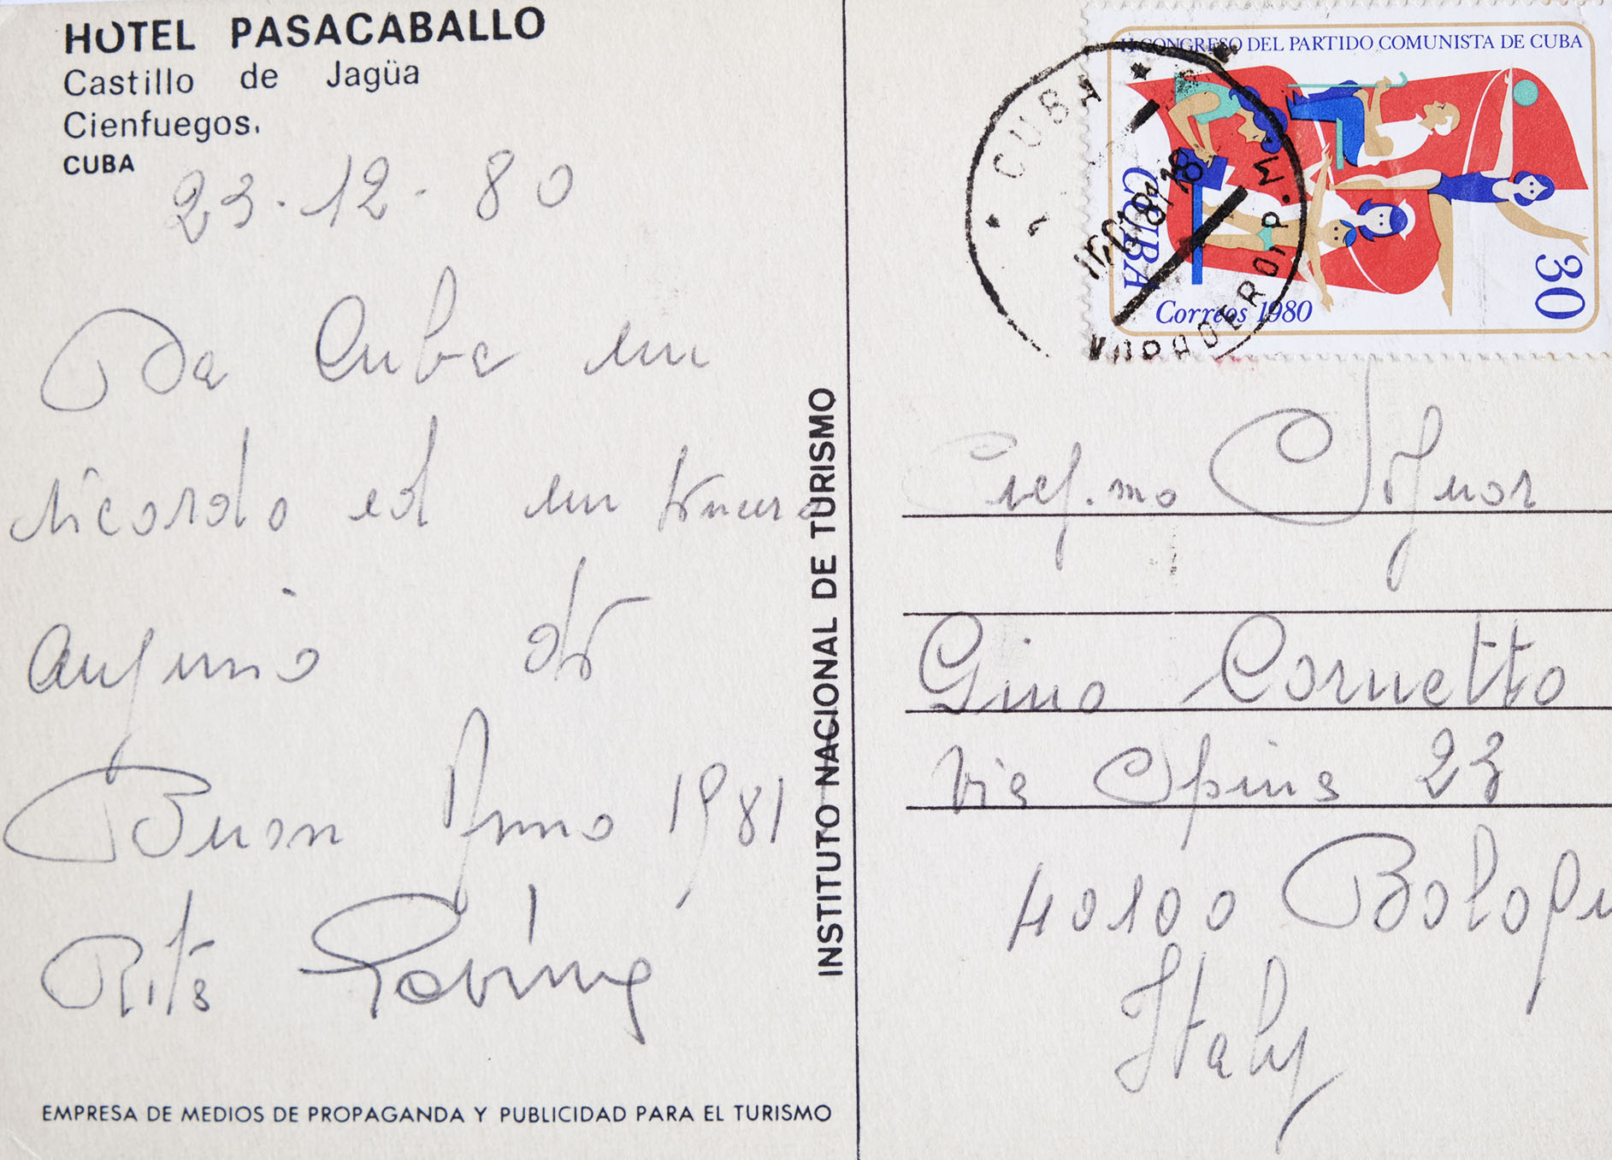 HOTEL PASACABALLO
Castillo de Jagüa
Cienfuegos.
CUBA
23-12-80
Da Cuba un
ricordo ed un sincero
augurio di
Buon Anno 1981
Rita
EMPRESA DE MEDIOS DE PROPAGANDA Y PUBLICIDAD PARA EL TURISMO
INSTITUTO NACIONAL DE TURISMO
II CONGRESO DEL PARTIDO COMUNISTA DE CUBA
CUBA
30
Correos 1980
CUBA
Signor
Gino Cornetto
Via Spina 23
40100 Bologn
Italy